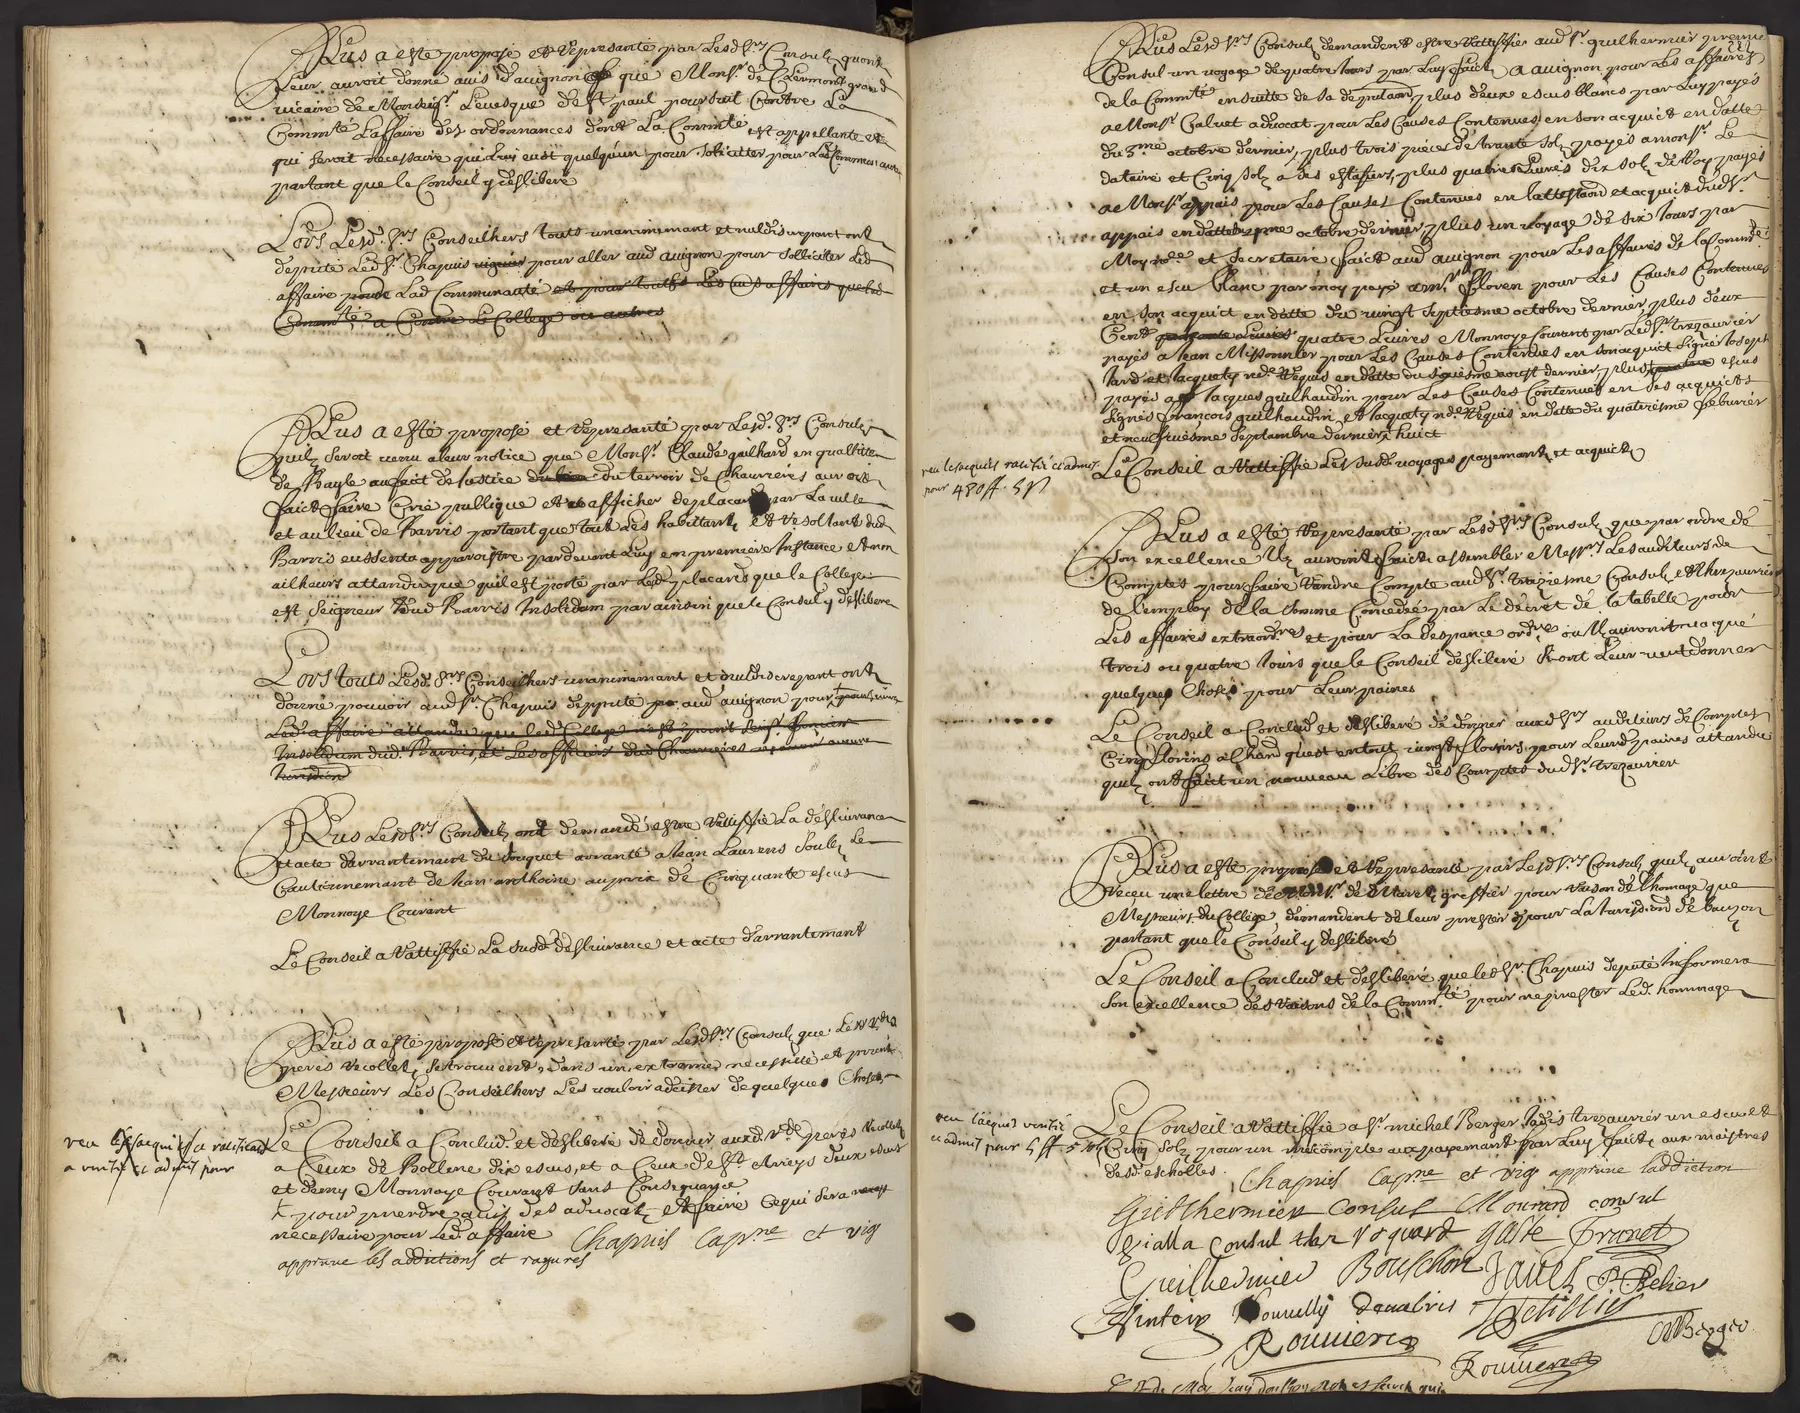 Plus a esté proposé et représanté par Lesd. Srs Consulz quon
Leur auroit donné avis d'avignon que Monsr de Clermont grand
vicaire de Monseigr Levesque de St paul poursuit Contre La
Commté L'affaire des ordonnances dont La Commté est appellante et
qui seroit necessaire quelqu'un pour soliciter pour Lad Communauté
partant que le Conseil y deslibere
Lors Lesd. Srs Conseilhers touts unanimemant et nul discrepant ont
deputé Led Sr Chapuis viguier pour aller aud avignon pour solliciter Led
affaire pour Lad Communauté et pour toutes Les affaires que lad
Commté a Contre Le College ou autres
Plus a esté proposé et represanté par Lesd. Srs Consulz
quil seroit venu a leur notice que Monsr Claude guilhard en quallitte
de Bayle au faict de Justice du terroir de Chauvieres auroit
faict faire Crie publique et afficher de placard par La ville
et au lieu de Barris portant que tout Les habitantz et resoltant dud
Barris eussent a apparoistre pardevant Luy en premiere Instance et non
ailheurs attandu que quil est porté par Led placard que le College
est Seigneur dud Barris Insolidum par ainsin que le Conseil y deslibere
Lors touts Lesd. Srs Conseilhers unanimemant et nul discrepant ont
donné pouvoir aud Sr Chapuis depputé aud avignon pour
Led. affaire attandu que led College nest point
Insolidum dud. Barris, et Les officiers dud Chauvieres
Jurisdion
Plus Lesd Srs Consulz ont demandé estre rattiffié La desliurance
et acte d'arrantemant du souquet arranté a Jean Laurens soubz Le
Cautionnemant de Jean anthoine au prix de Cinquante escus
Monnoye Courant
Le Conseil a rattiffié La susd desliurance et acte d'arrantemant
Plus a esté proposé et represanté par Lesd Srs Consulz que Les Rds
peres recolletz se trouvent dans un extreme necessitté et prient
Messieurs Les Conseilhers Les vouloir assister de quelque Chose
Le Conseil a Conclud et desliberé de donner auxd Rds peres recolletz
a Ceux de Bollene dix escus, et a Ceux de deux escus
et demy Monnoye Courant sans Consequance
pour prendre avis des advocatz et faire ce qui sera
necessaire pour Led. affaire Chapuis Capne et vig
appreuve les addictions et rayures
veu ratifié
a verifié et admis pour
Plus Lesd Srs Consulz demandent estre rattiffié aud Sr guilhermier premier
Consul un voyage de quatre Jours par Luy faict a avignon pour Les affaires
de la Commté ensuitte de sa deputaon, plus deux escus blancs par Luy payés
a Monsr Calvet advocat pour Les Causes Contenues en son acquict en datte
du 3me octobre dernier, plus trois pieces de trante solz payés a monsr Le
dataire et Cinq solz a ses estafiers, plus quatre Livres dix solz de Roy payés
a Monsr appais pour Les Causes Contenues en lattestaon et acquict dud Sr
appais en datte octobre dernier, plus un voyage de six Jours par
Moy nore et secretaire faict aud avignon pour Les affaires de la Commté
et un escu blanc par moy payé a mr floren pour Les Causes Contenues
en son acquict en datte du vingt septiesme octobre dernier, plus deux
Cent quatre Livres Monnoye Courant par Led Sr trezaurier
payés a Jean Missonnier pour Les Causes Contenues en son acquict signer Joseph
Jard et Jacquety nore requis en datte du sixiesme aoust dernier, plus escus
payés a Jacques guilhaudin pour Les Causes Contenues en ses acquicts
signés françois guilhaudin et Jacquety nore requis en datte du quatriesme feburier
et neufviesme septambre derniers huict
Le Conseil a rattiffié Les susd voyages payemantz et acquictz
veu lesacquis ratifié et admis
pour 480 ff
Plus a esté represanté par Lesd Srs Consulz que par ordre de
son excellence Ilz auroint faict assembler Messrs Les auditeurs de
Comptes pour faire randre Compte aud Sr troiziesme Consul et thezaurier
de l'employ de la somme Concedée par Le decret de la tabelle pour
Les affaires extraordres et pour La despance ordre ou Ilz auroint vacqué
trois ou quatre Jours que le Conseil desliberé sont Leur veut donner
quelques Choses pour Leur paines
Le Conseil a Conclud et desliberé de donner auxd Srs auditeurs de Comptes
Cinq florins a Chand quest en tout vingt florins pour Leurs paines attandu
quilz ont faict un nouveau Libre des Comptes dud Sr trezaurier
Plus a esté proposé et represanté par Lesd Srs Consulz quilz auroint
receu une lettre de Monsr de greffier pour raison de lhomage que
Messieurs du College demandent de leur prester pour La Jurisdion de bauzon
partant que le Conseil y desliberé
Le Conseil a Conclud et desliberé que led Sr Chapuis deputé Informera
son excellence des raisons de la Commté pour ne prester Led. hommage
Le Conseil a rattiffié a Sr michel Berger Jadis trezaurier un escu et
Cinq solz pour un mecompte au payemant par Luy faict aux maistres
desd escholles. Chapuis Capne et vig appreuve laddiction
veu l'aquit verifié
et admit pour 5 ff
Guilhermier Consul Mourard consul
Gialla Consul ther Voguard gaste Tranet
Guilhermier Bouschon Javets P. Pelier
Sintein devabris
Rouviere MBerger
Rouviere